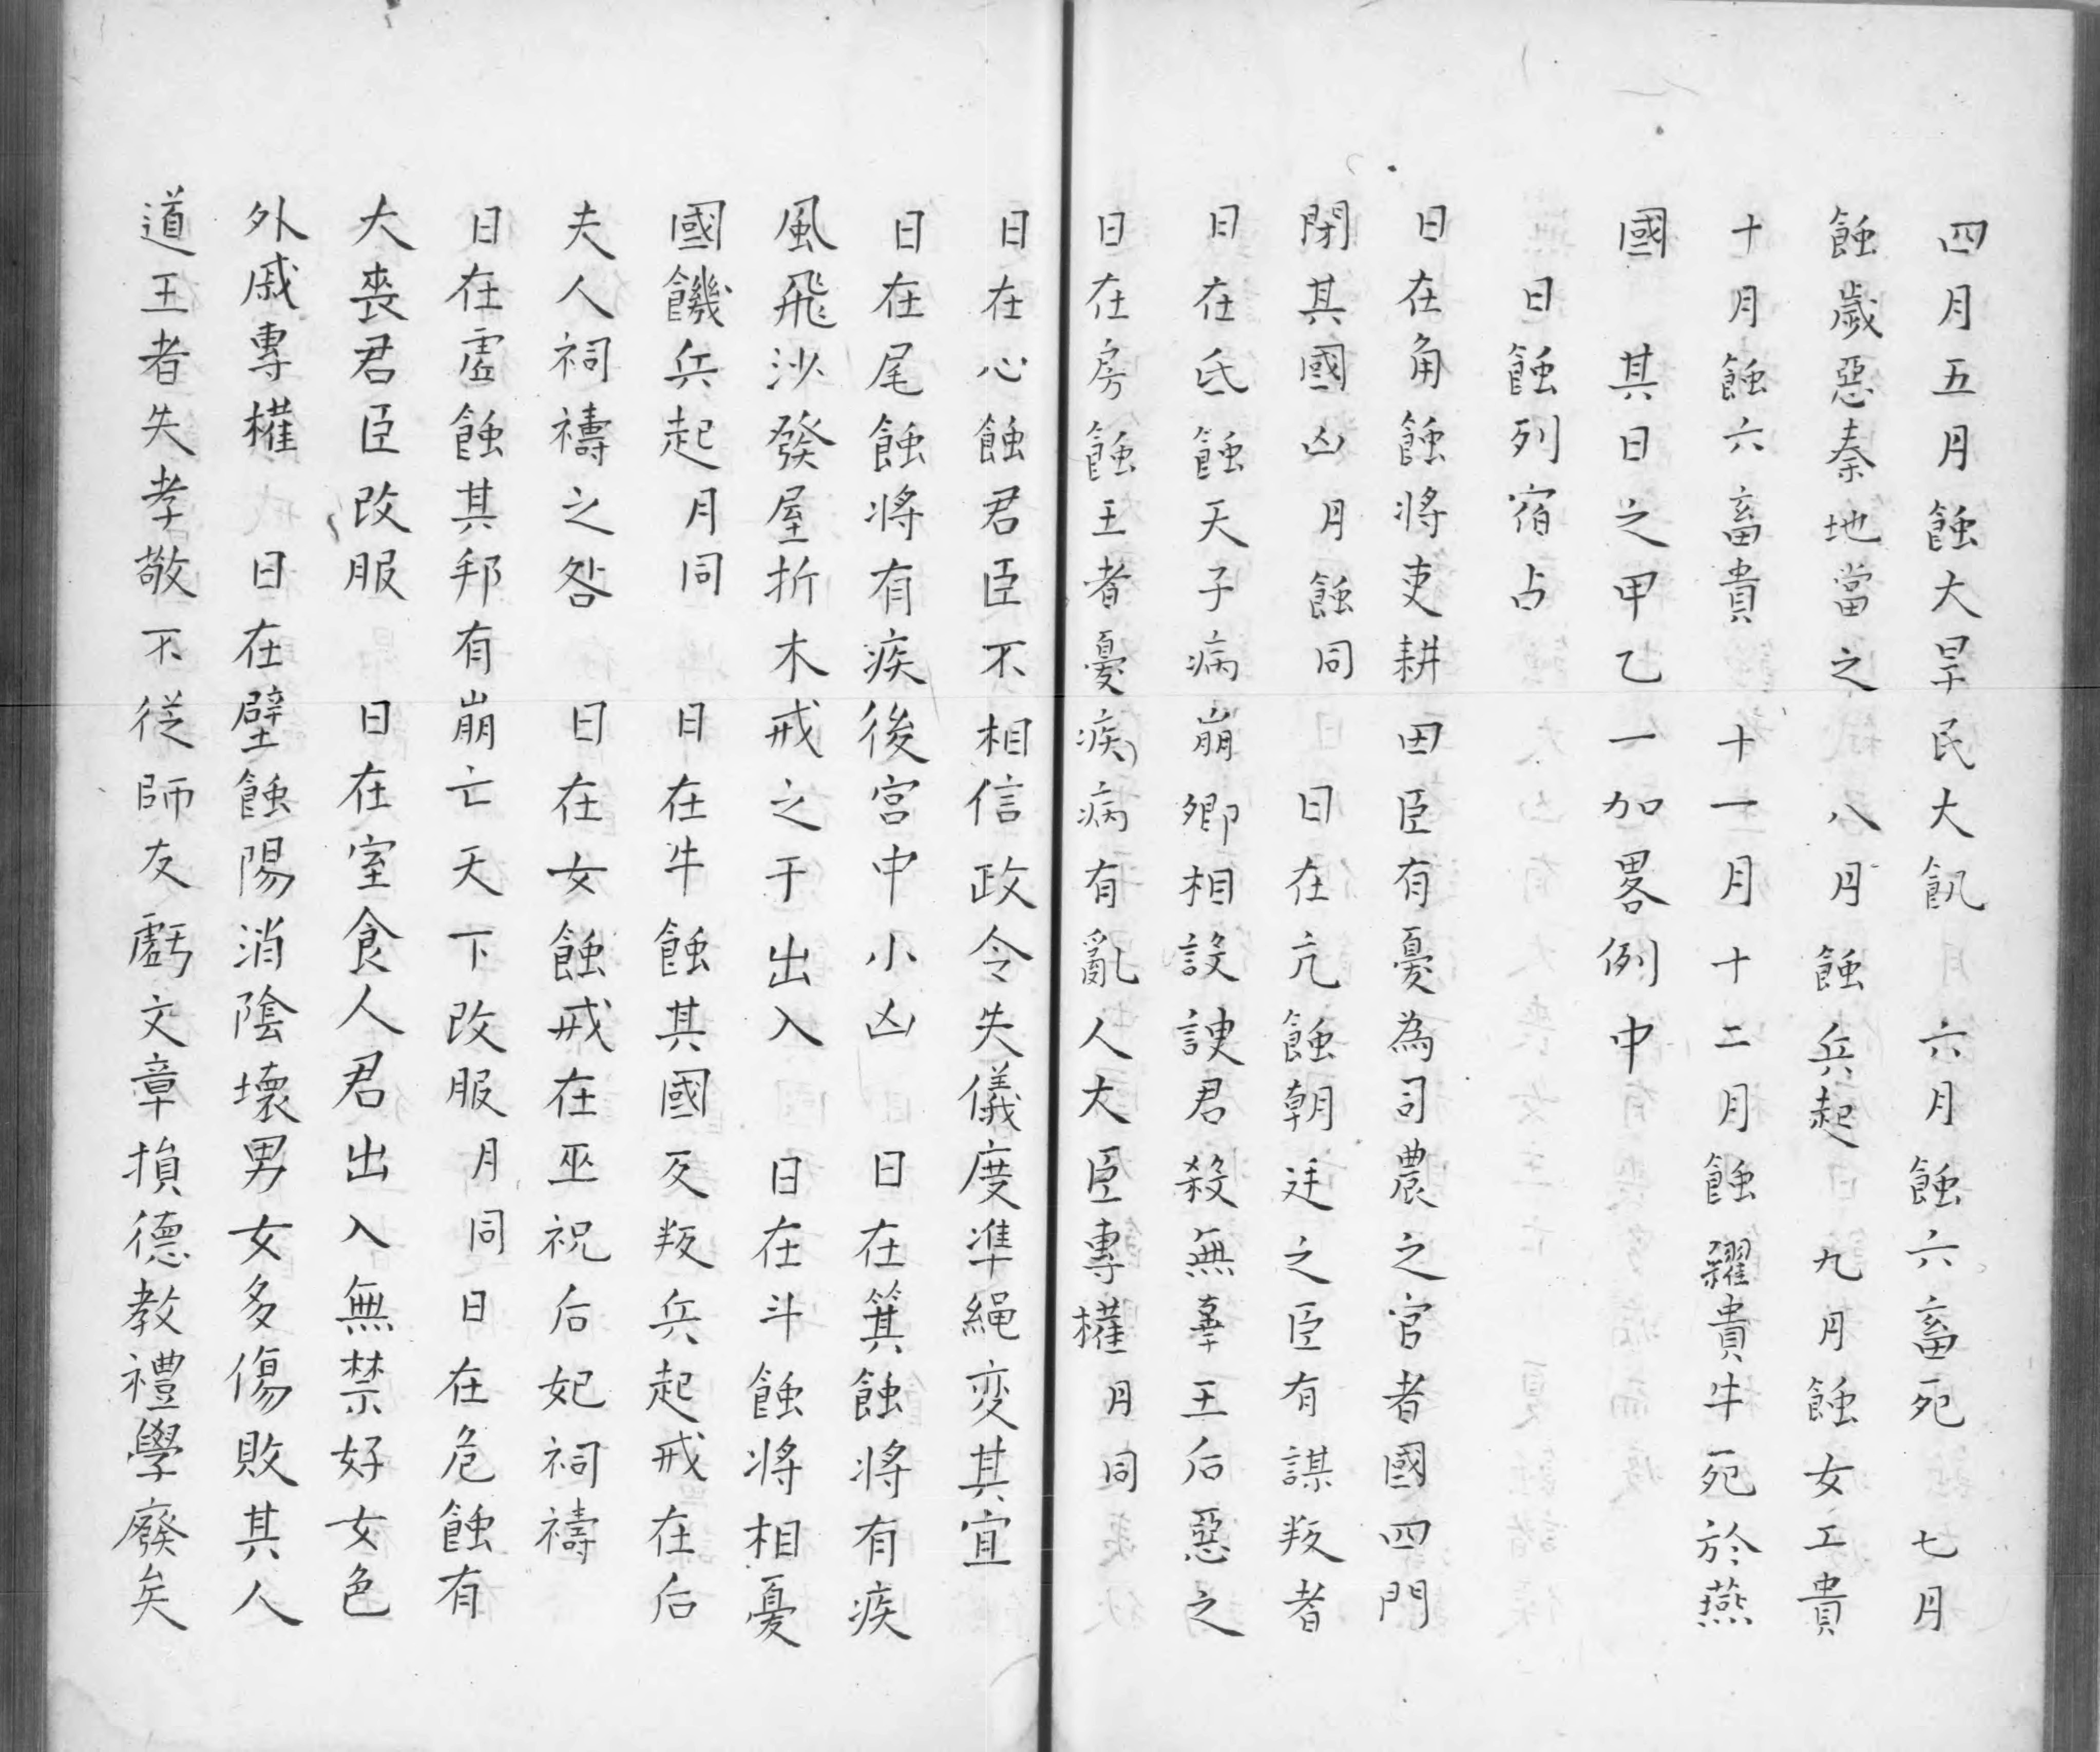 四月五月蝕大旱民大飢　六月蝕六畜死　七月
蝕歲惡秦地當之　八月蝕兵起　九月蝕女工貴
十月蝕六畜貴　十一月十二月蝕糶貴牛死於燕
國　其日之甲乙一加畧例中
日蝕列宿占
日在角蝕將吏耕田臣有憂為司農之官者國四門
閉其國凶月蝕同　日在亢蝕朝廷之臣有謀叛者
日在氐蝕天子病崩卿相設諛君殺無辜王后惡之
日在房蝕王者憂疾病有亂人大臣專權月同
日在心蝕君臣不相信政令失儀度準繩変其宜
日在尾蝕將有疾後宮中小凶　日在箕蝕將有疾
風飛沙發屋折木戒之于出入　日在斗蝕將相憂
國饑兵起月同　日在牛蝕其國叛兵起戒在后
夫人祠禱之咎　日在女蝕戒在巫祝后妃祠禱
日在虛蝕其邦有崩亡天下改服月同　日在危蝕有
大喪君臣改服　日在室食人君出入無禁好女色
外戚專權　日在壁蝕陽消陰壞男女多傷敗其人
道王者失孝敬不從師友虧文章損德教禮學廢矣